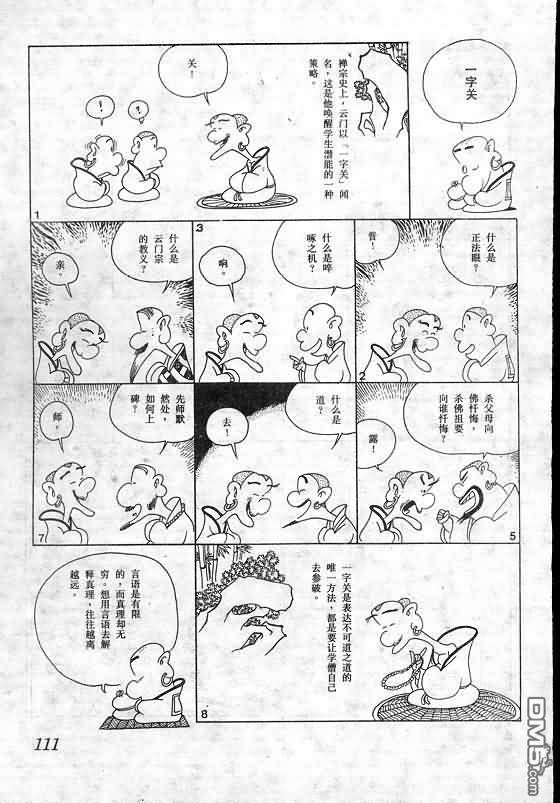 一字关
禅宗史上，云门以「一字关」闻
名，这是他唤醒学生潜能的一种
策略。
关！
！
？
1
什么是
正法眼？
普！
2
什么是啐
啄之机？
响。
3
什么是
云门宗
的教义？
亲。
杀父母向
佛忏悔，
杀佛祖要
向谁忏悔
露！
5
什么是
道？
去！
先师默
然处，
如何上
碑？
师。
7
一字关是表达不可道之道的
唯一方法，都是要让学僧自己
去参破。
8
言语是有限
的，而真理却无
穷。想用言语去解
释真理，往往越离
越远。
111
DM5.com